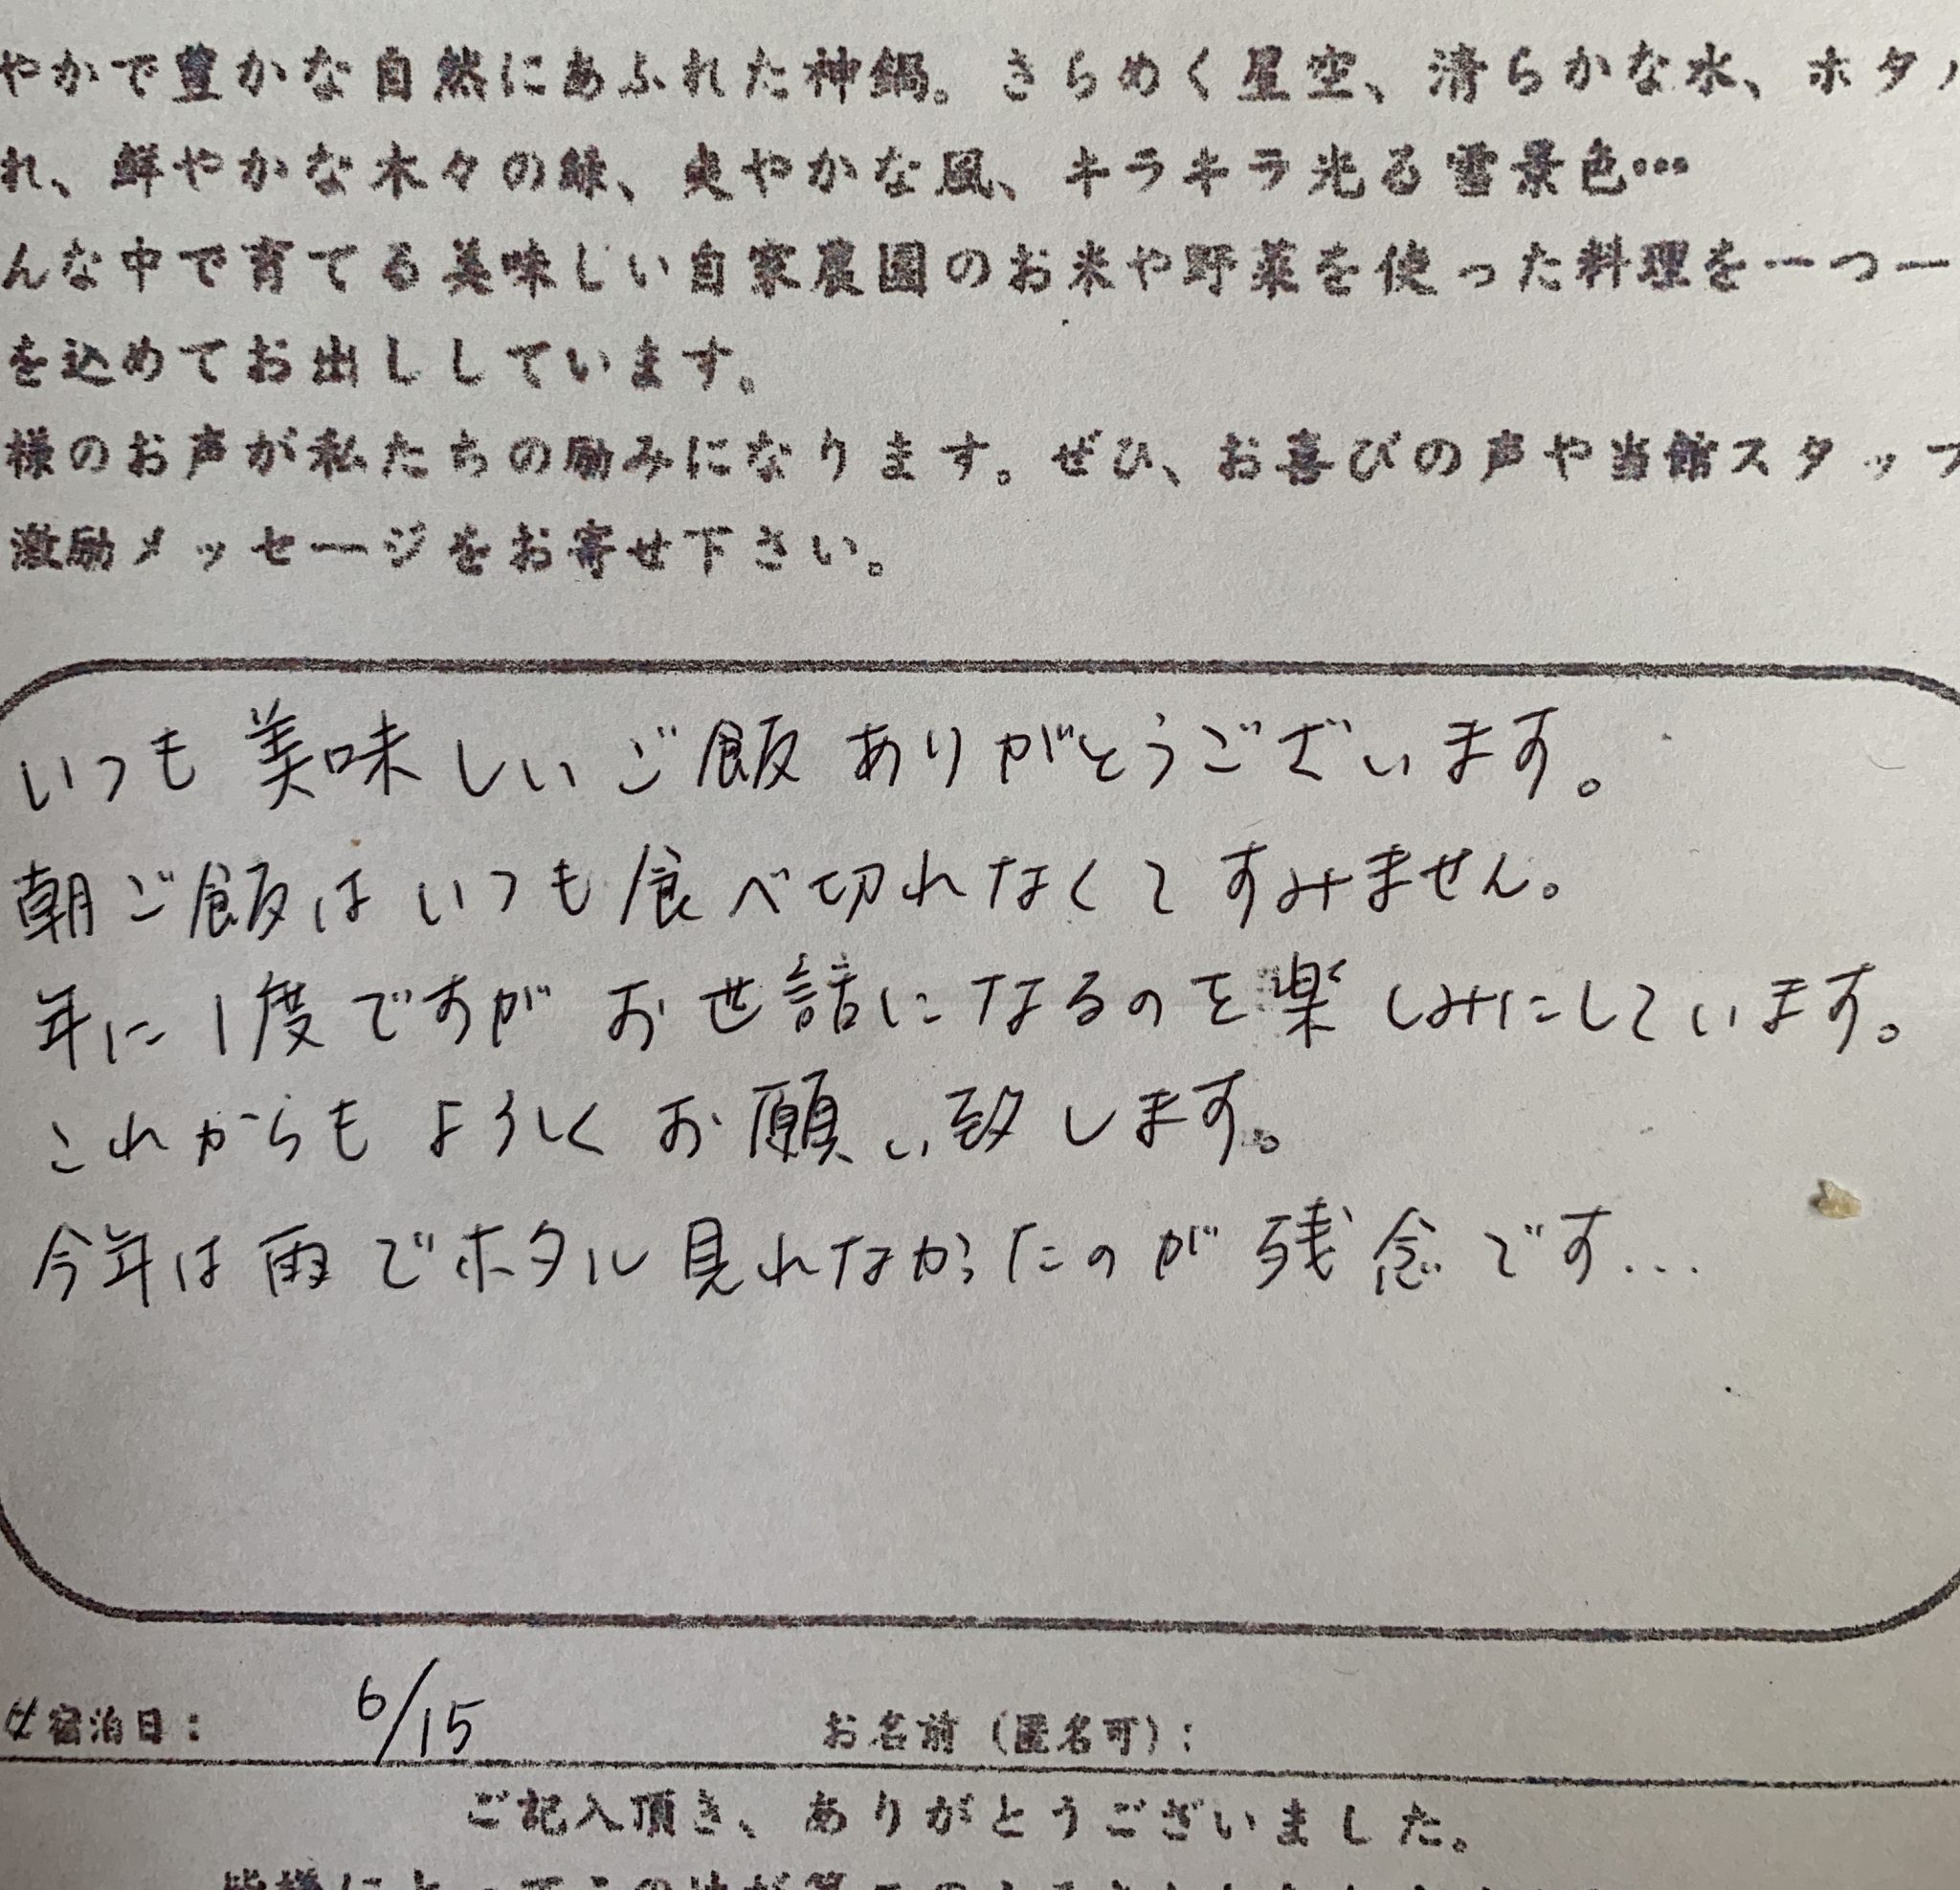 やかで豊かな自然にあふれた神鍋。きらめく星空、清らかな水、ホタル
れ、鮮やかな木々の緑、爽やかな風、キラキラ光る雪景色…
んな中で育てる美味しい自家農園のお米や野菜を使った料理を一つ一
を込めてお出ししています。
様のお声が私たちの励みになります。ぜひ、お喜びの声や当館スタッフ
激励メッセージをお寄せ下さい。
いつも美味しいご飯ありがとうございます。
朝ご飯はいつも食べ切れなくてすみません。
年に1度ですがお世話になるのを楽しみにしています。
これからもよろしくお願い致します。
今年は雨でホタル見れなかったのが残念です...
宿泊日: 6/15 お名前(匿名可):
ご記入頂き、ありがとうございました。